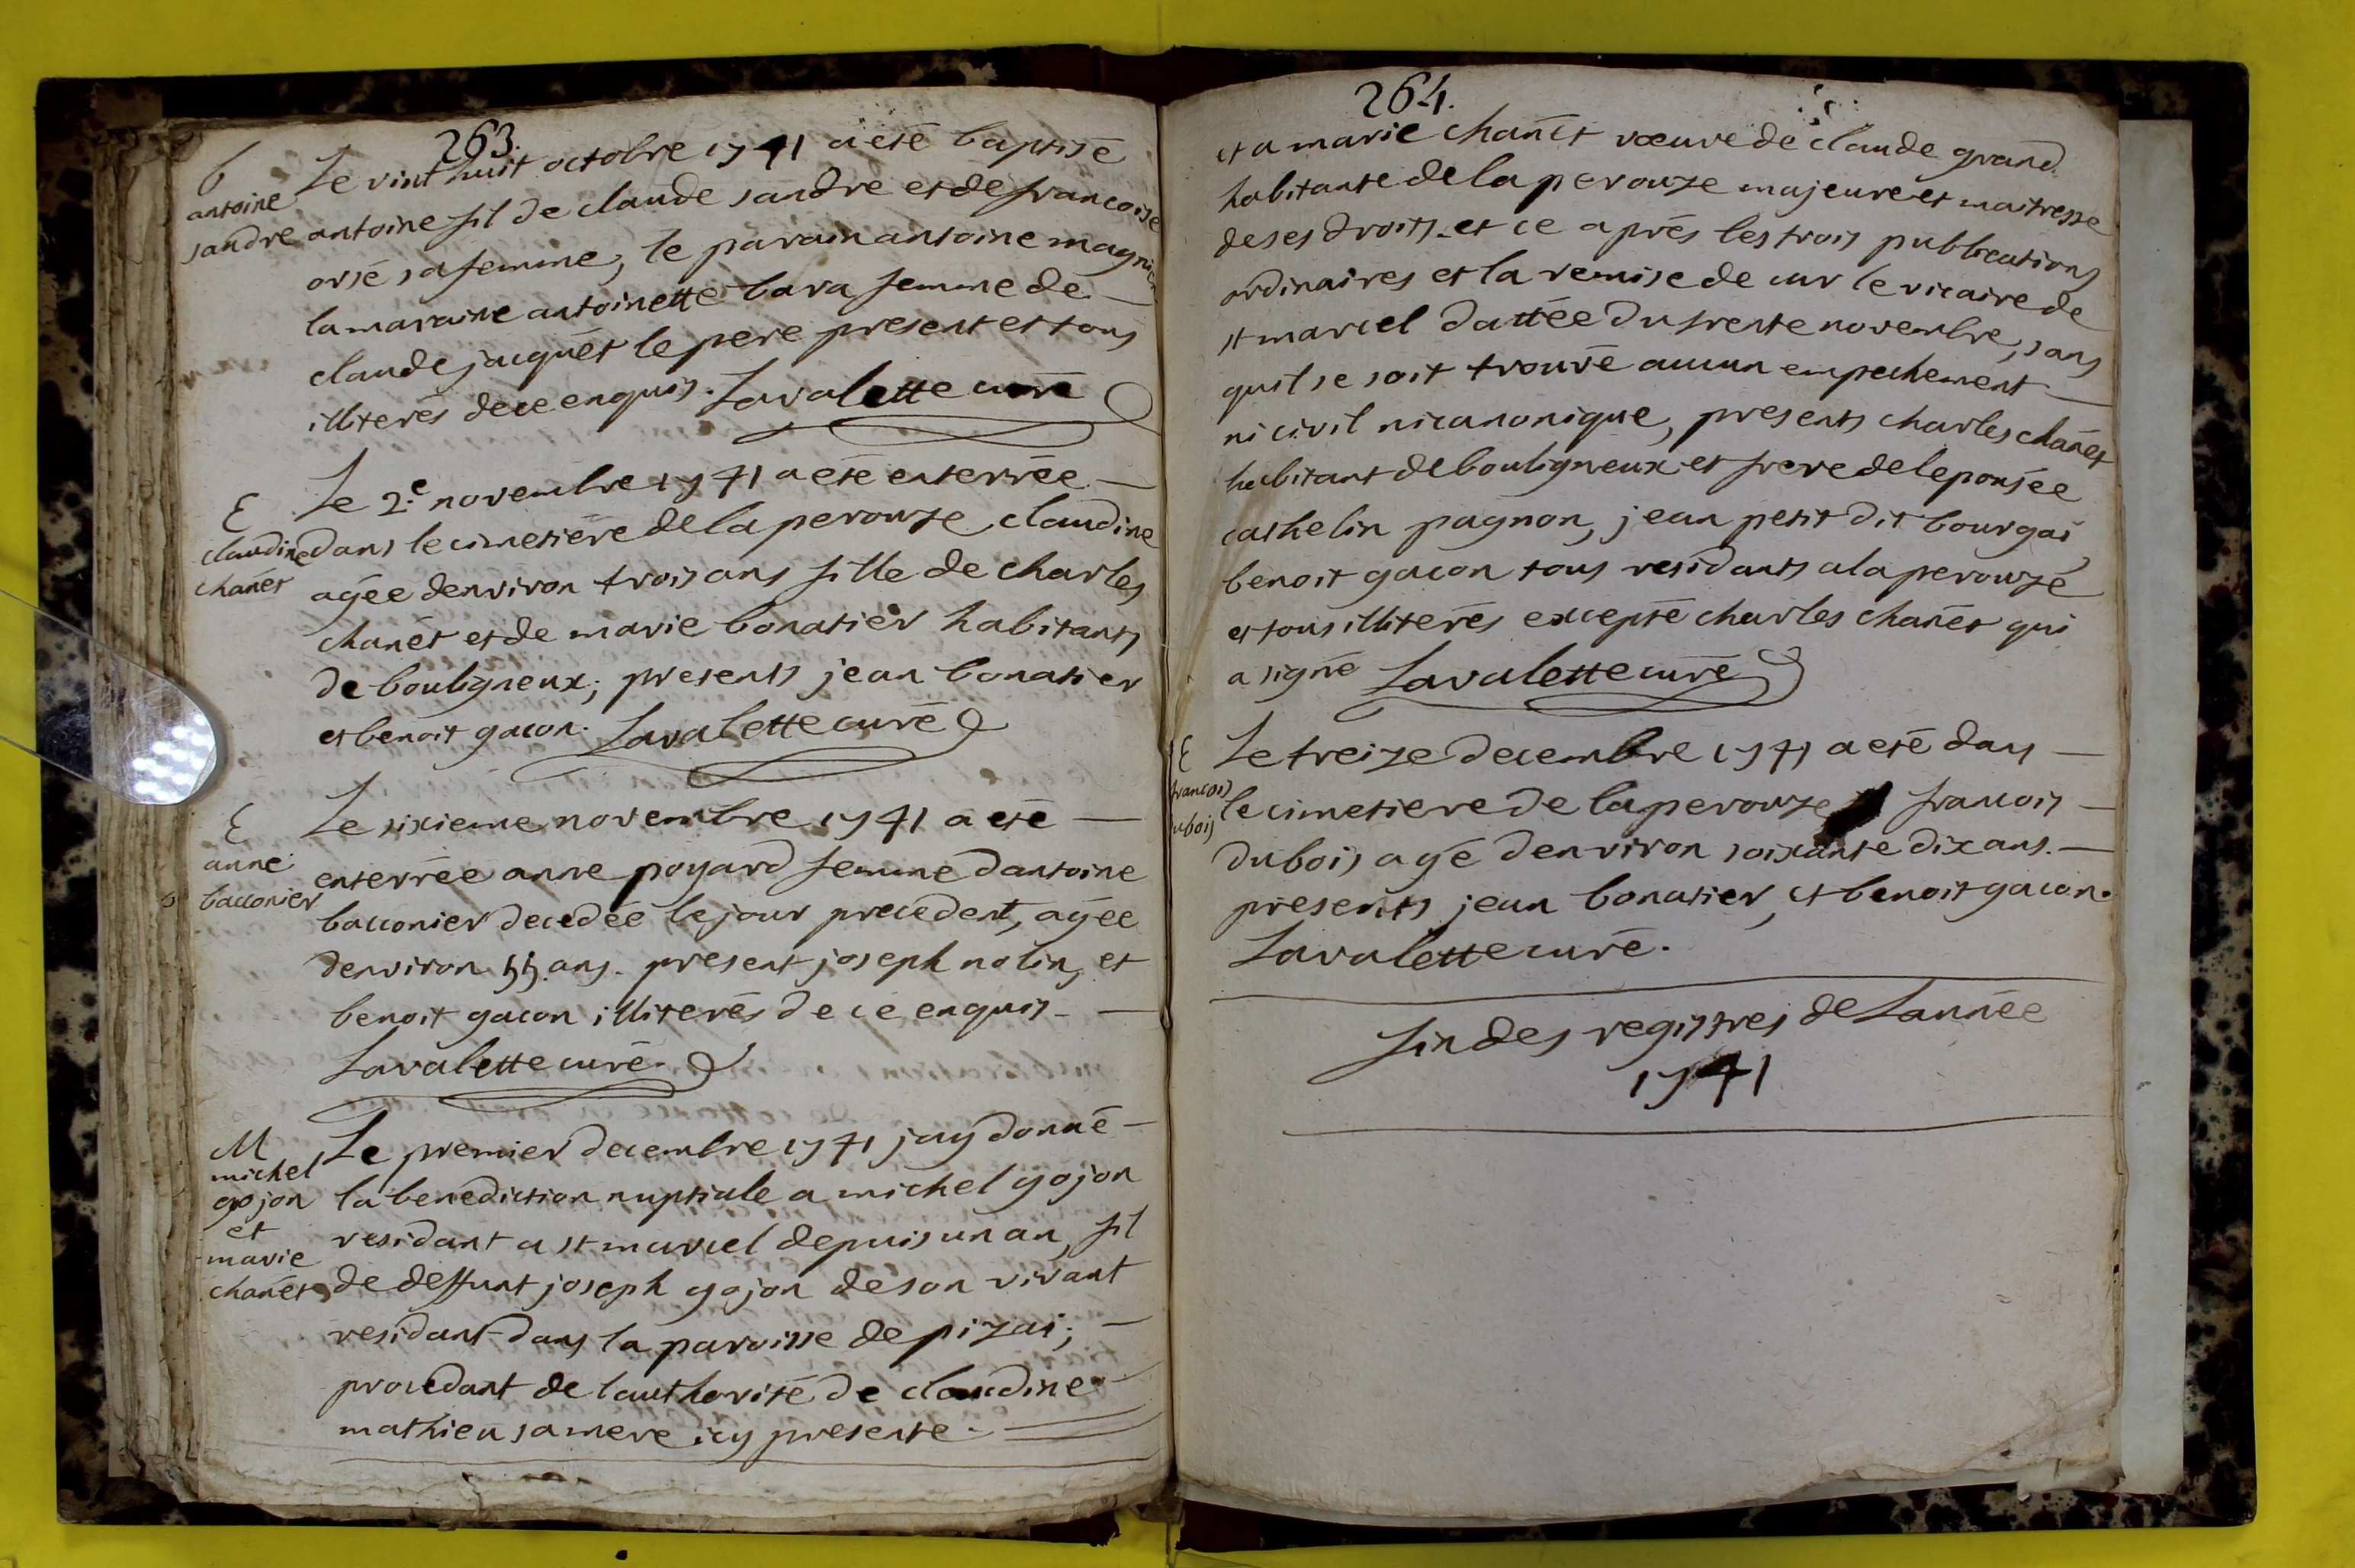 263.
b
antoine
sandre
Le vint huit octobre 1741 a eté baptisé
antoine fil de claude sandre et de francoise
orsé sa femme, le parain antoine magnien
la maraine antoinette bara femme de
claude jacquét le pere present et tous
illiterés de ce enquis. Lavalette curé
E
claudine
chanét
Le 2.e novembre 1741 a eté enterrée
dans le cimetiére de la perouze claudine
agée denviron trois ans fille de charles
chanét et de marie bonatier habitants
de bouligneux; presents jean bonatier
et benoit gacon. Lavalette curé
E
anne
bacconier
Le sixieme novembre 1741 a eté
enterrée anne poyard femme dantoine
bacconier decedée le jour precedent, agée
denviron 55 ans. present joseph nolin, et
benoit gacon illiterés de ce enquis.
Lavalette curé.
M
michel
gojon
et
marie
chanét
Le premier decembre 1741 jay donné
la benediction nuptiale a michel gojon
residant a st marcel depuis un an, fil
de deffunt joseph gojon de son vivant
residant dans la paroisse de pizai;
procedant de lauthorité de claudine
mathieu sa mere icy presente.
264.
et a marie chanét vœuve de claude grand
habitante de la perouze majeure et maitresse
de ses droits. et ce aprés les trois publications
ordinaires et la remise de mr le vicaire de
st marcel dattée du trente novembre, sans
quil se soit trouvé aucun empechement
ni civil ni canonique, presents charles chanét
habitant de bouligneux et frere de lepousée
cathelin pagnon, jean petit dit bourgai,
benoit gacon tous residants a la perouze
et tous illiterés excepté charles chanét qui
a signé Lavalette curé
E
francois
dubois
Le treize decembre 1741 a eté dans
le cimetiere de la perouze francois
dubois agé denviron soixante dix ans.
presents jean bonatier, et benoit gacon.
Lavalette curé.
fin des registres de Lannée
1741